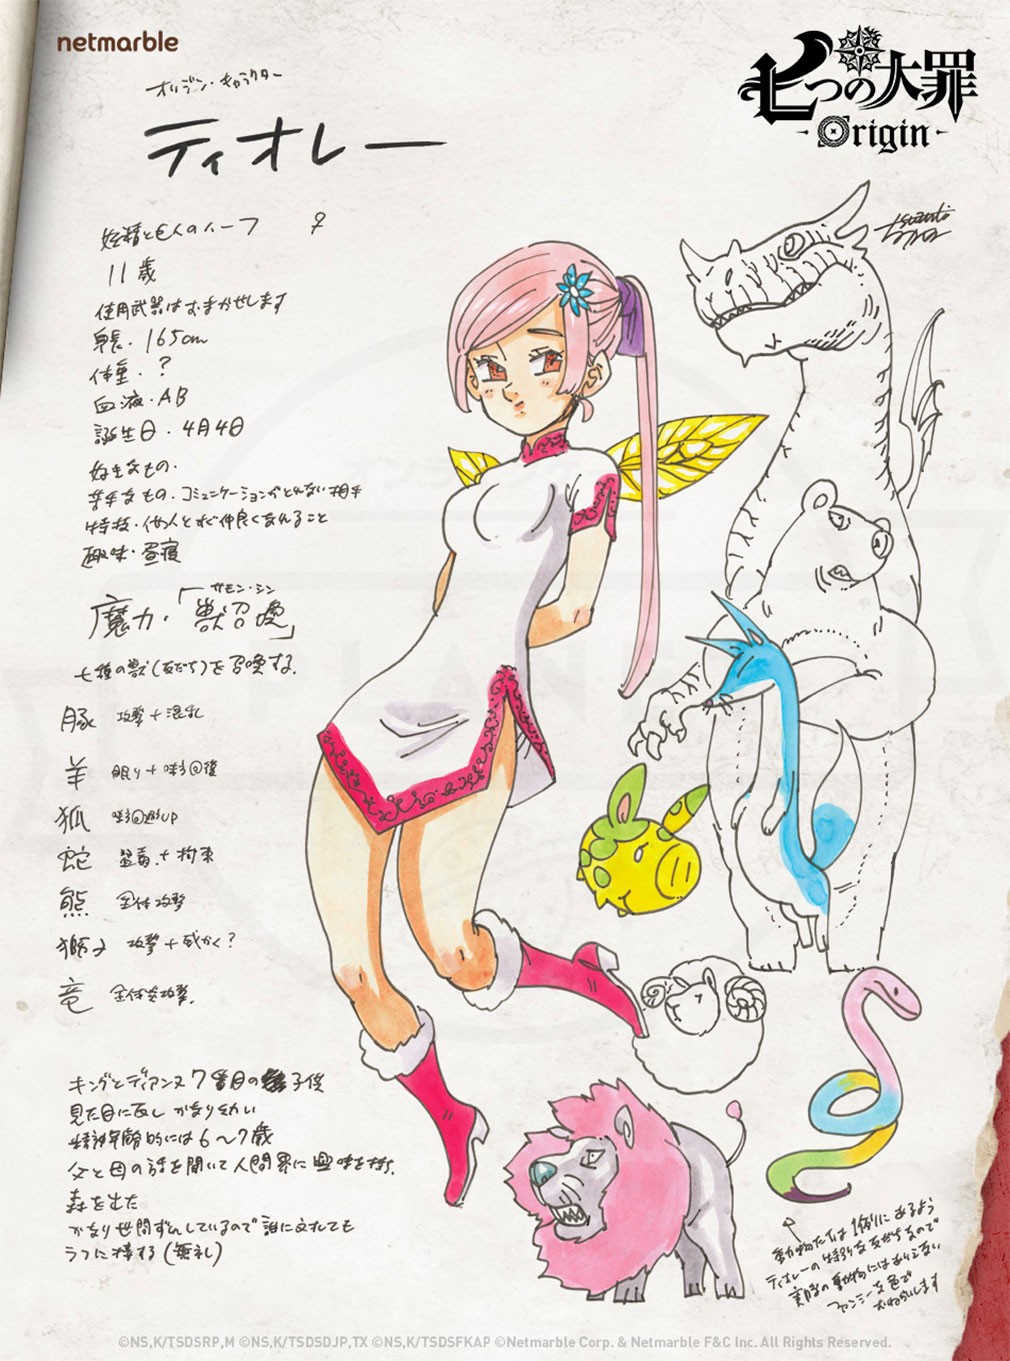 netmarble
七つの大罪
Origin
オリジン・キャラクター
ティオレー
妖精と巨人のハーフ ♀
11歳
使用武器はおまかせします
身長・165cm
体重・?
血液・AB
誕生日・4月4日
好きなもの・
苦手なもの・コミュニケーションがとれない相手
特技・他人とすぐ仲良くなれること
趣味・昼寝
サモン・シン
魔力・「獣召喚」
七種の獣(友だち)を召喚する.
豚 攻撃+混乱
羊 眠り+味方回復
狐 味方回避UP
蛇 猛毒+拘束
熊 全体攻撃
獅子 攻撃+威かく?
竜 全体攻撃.
キングとディアンヌ7番目の子供
見た目に反しかなり幼い
精神年齢的には6〜7歳
父と母の話を聞いて人間界に興味を持ち.
森を出た
かなり世間ずれしているので誰に対しても
ラフに接する(無礼)
動物たちは1例にあるよう
ティオレーの特別な友だちなので
実際の動物にはありえない
ファンシーな色で
おねがいします
©NS,K/TSDSRP,M ©NS,K/TSDSDJP,TX ©NS,K/TSDSFKAP ©Netmarble Corp. & Netmarble F&C Inc. All Rights Reserved.